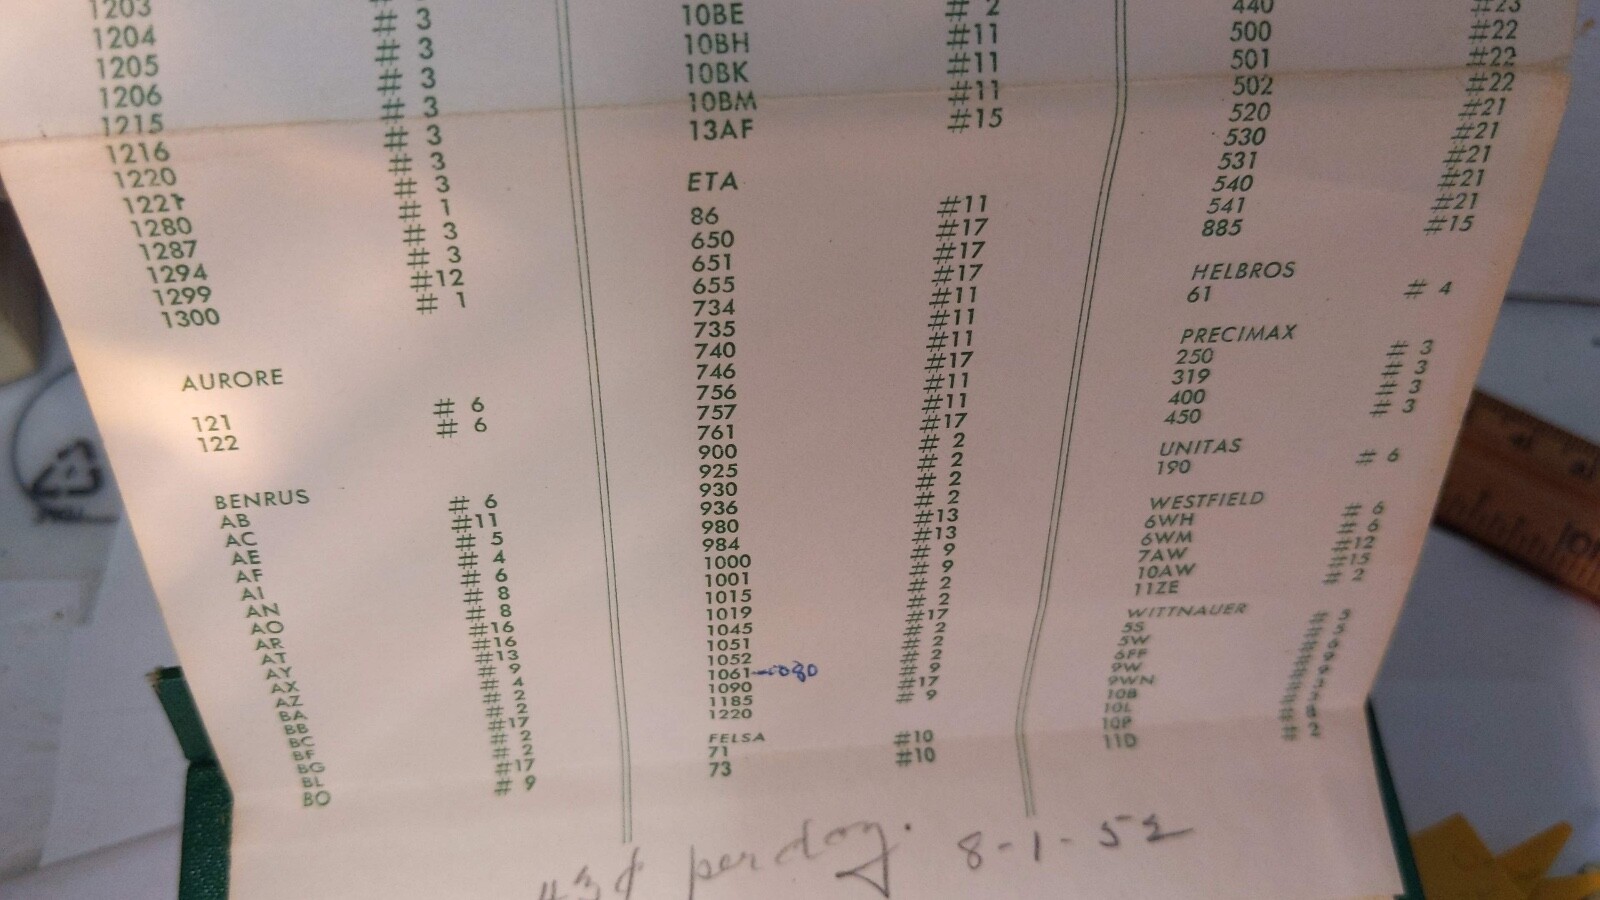 1203
1204 # 3
1205 # 3
1206 # 3
1215 # 3
1216 # 3
1220 # 3
1221 # 3
1280 # 1
1287 # 3
1294 # 3
1299 #12
1300 # 1
AURORE
121 # 6
122 # 6
BENRUS
AB # 6
AC #11
AE # 5
AF # 4
AI # 6
AN # 8
AO # 8
AR #16
AT #16
AY #13
AX # 9
AZ # 4
BA # 2
BB # 2
BC #17
BF # 2
BG # 2
BL #17
BO # 9
10BE # 2
10BH #11
10BK #11
10BM #11
13AF #15
ETA
86 #11
650 #17
651 #17
655 #17
734 #11
735 #11
740 #11
746 #17
756 #11
757 #11
761 #17
900 # 2
925 # 2
930 # 2
936 # 2
980 #13
984 #13
1000 # 9
1001 # 9
1015 # 2
1019 # 2
1045 #17
1051 # 2
1052 # 2
1061 # 2
1090 # 9
1185 #17
1220 # 9
FELSA
71 #10
73 #10
440 #23
500 #22
501 #22
502 #22
520 #21
530 #21
531 #21
540 #21
541 #21
885 #15
HELBROS
61 # 4
PRECIMAX
250 # 3
319 # 3
400 # 3
450 # 3
UNITAS
190 # 6
WESTFIELD
6WH # 6
6WM # 6
7AW #12
10AW #15
11ZE # 2
WITTNAUER
5S # 5
5W # 5
6FF # 6
9W # 9
9WN # 9
10B # 3
10L
10P # 8
11D # 2
43¢ per day. 8-1-52